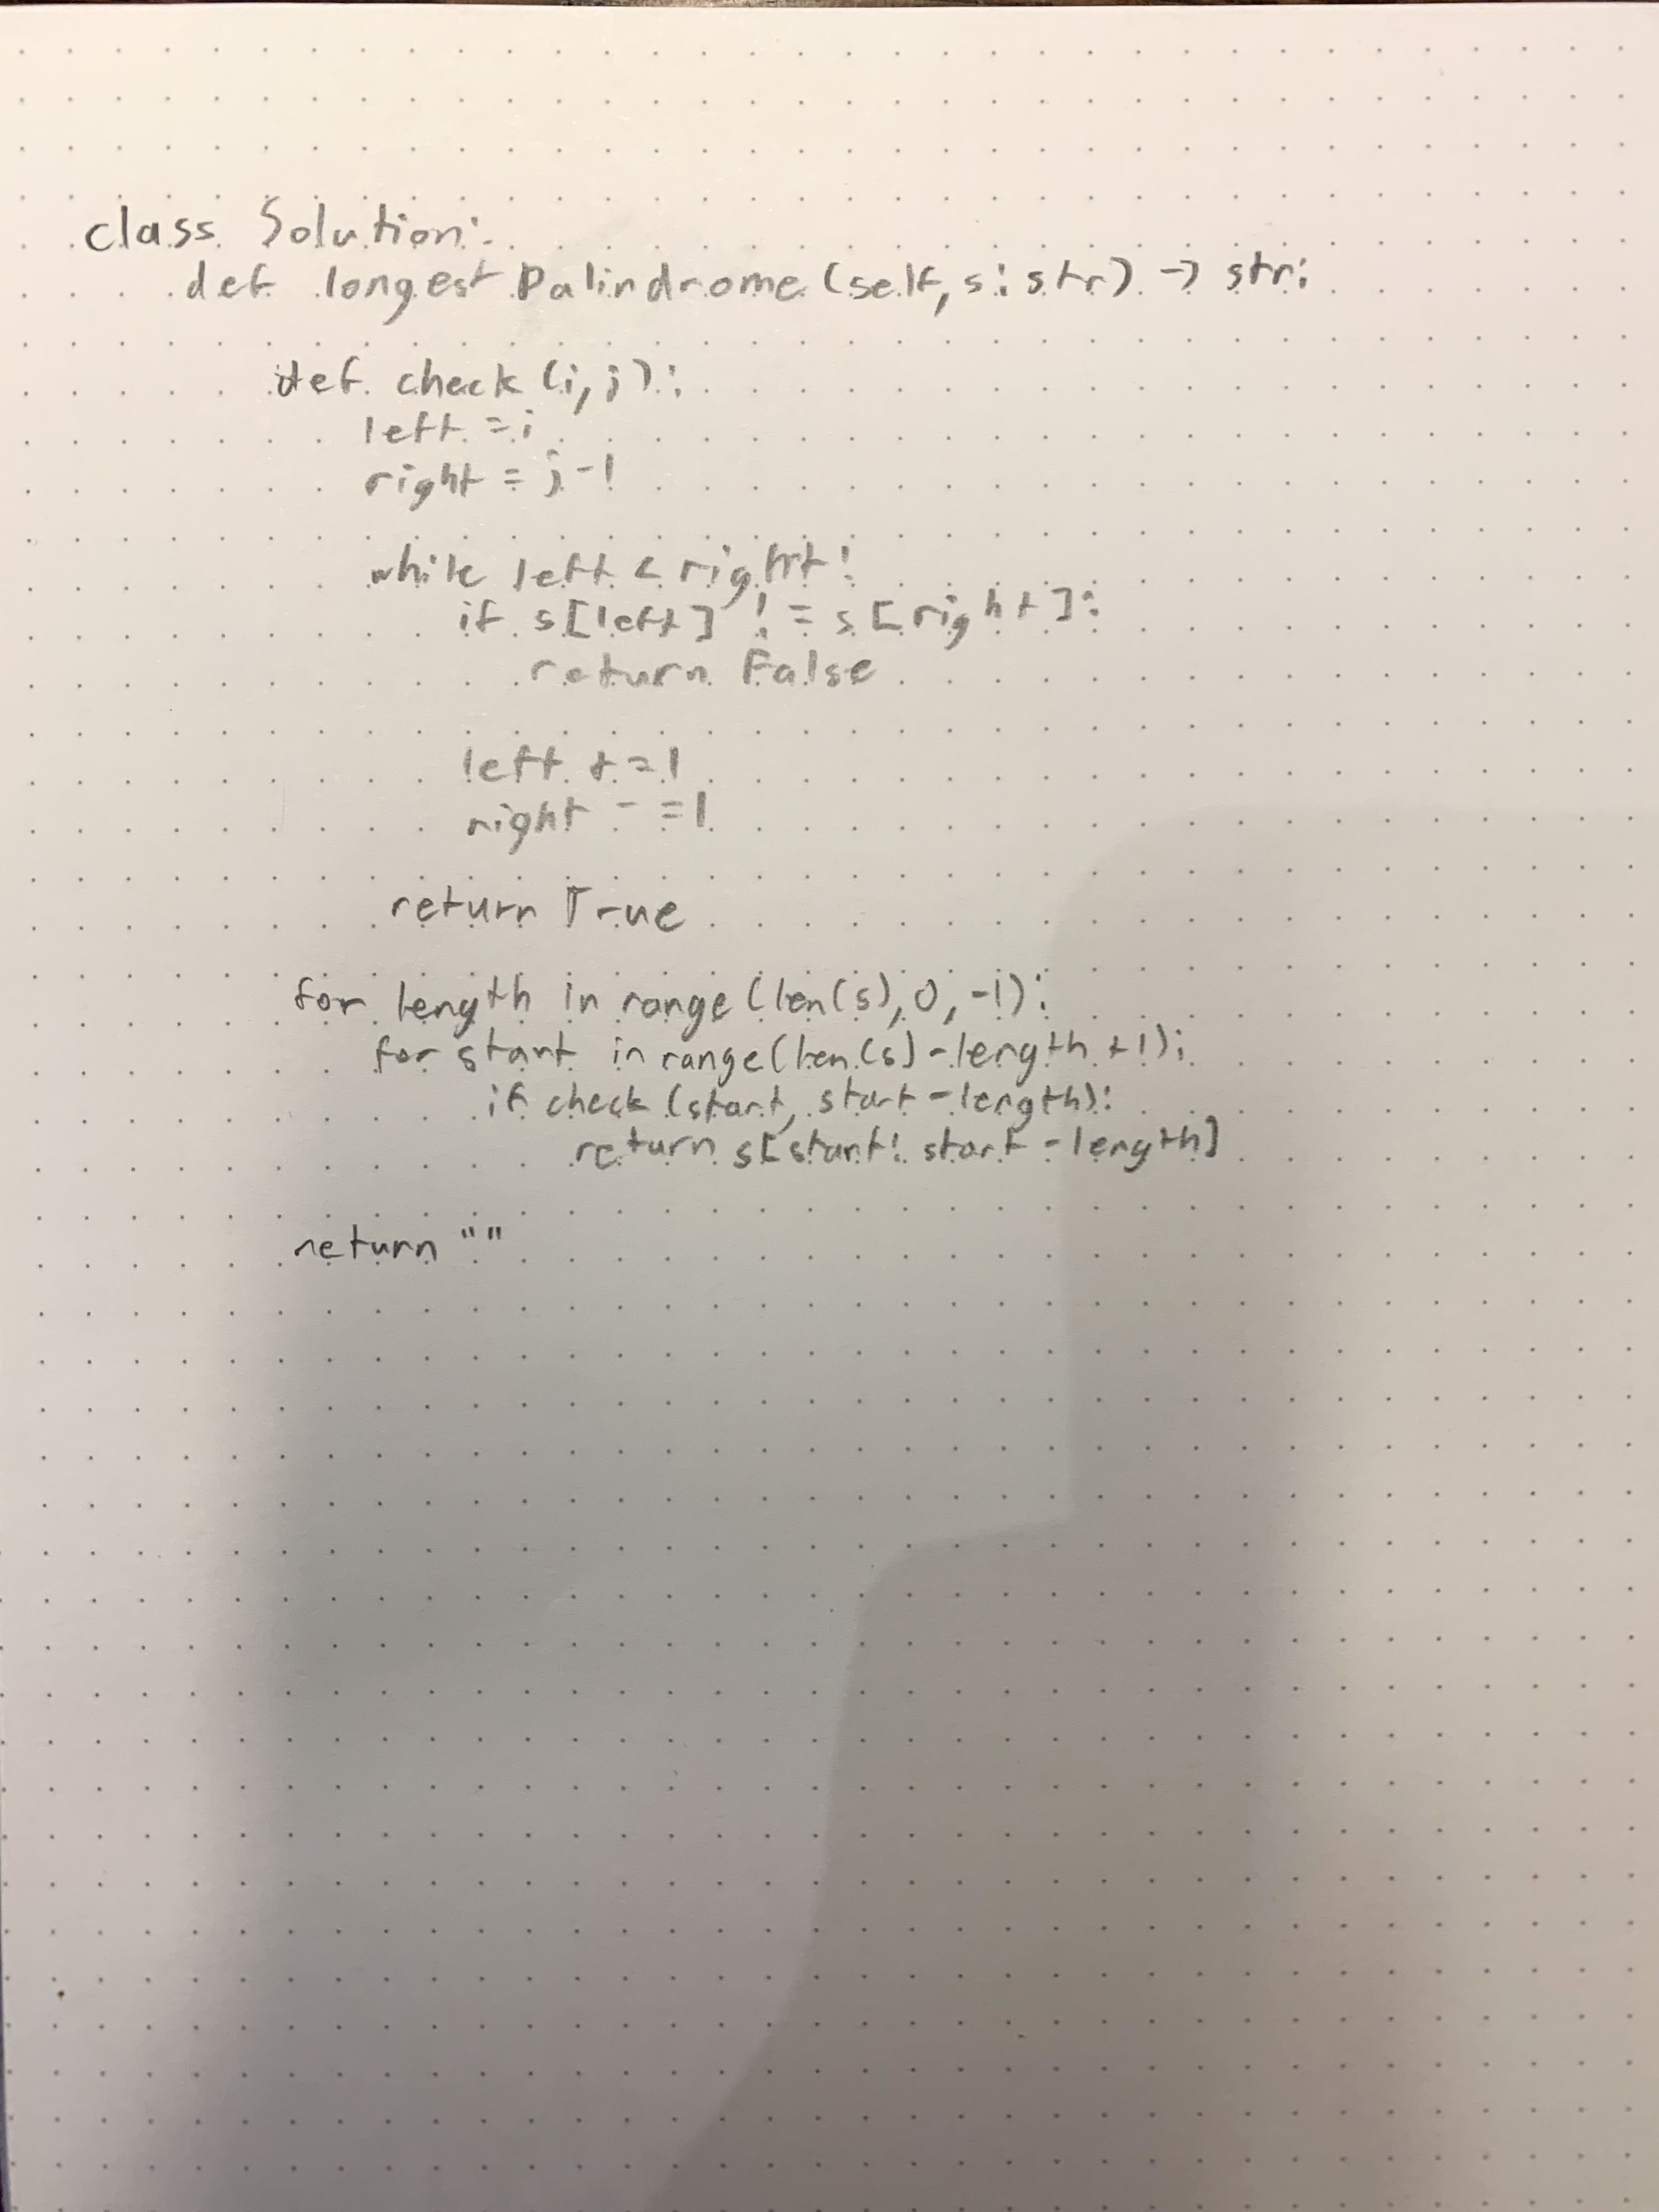 class Solution:
def longestPalindrome(self, s: str) -> str:
def check(i, j):
left = i
right = j - 1
while left < right:
if s[left] != s[right]:
return False
left += 1
right -= 1
return True
for length in range(len(s), 0, -1):
for start in range(len(s) - length + 1):
if check(start, start - length):
return s[start: start - length]
return ""